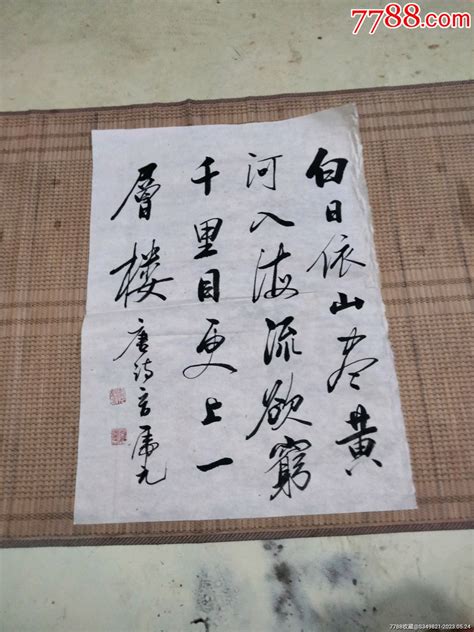 7788.com
白日依山尽黄
河入海流欲窮
千里目更上一
層楼
唐诗
7788收藏@S349821-2023.05.24